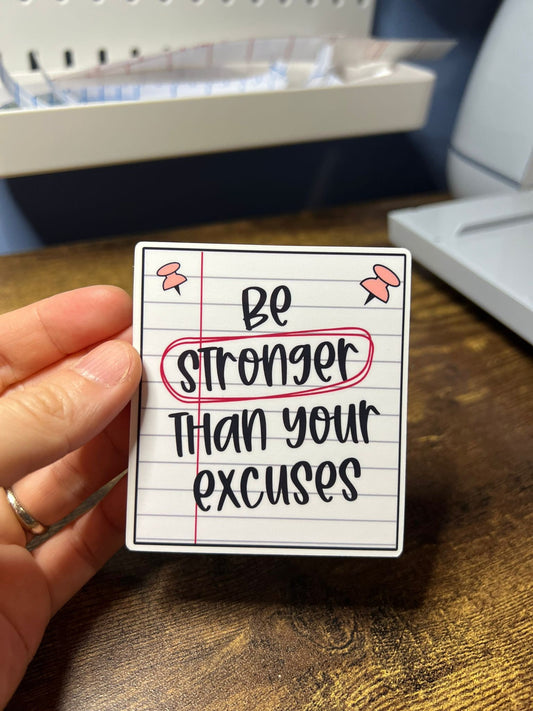 Be
stronger
THan your
excuses